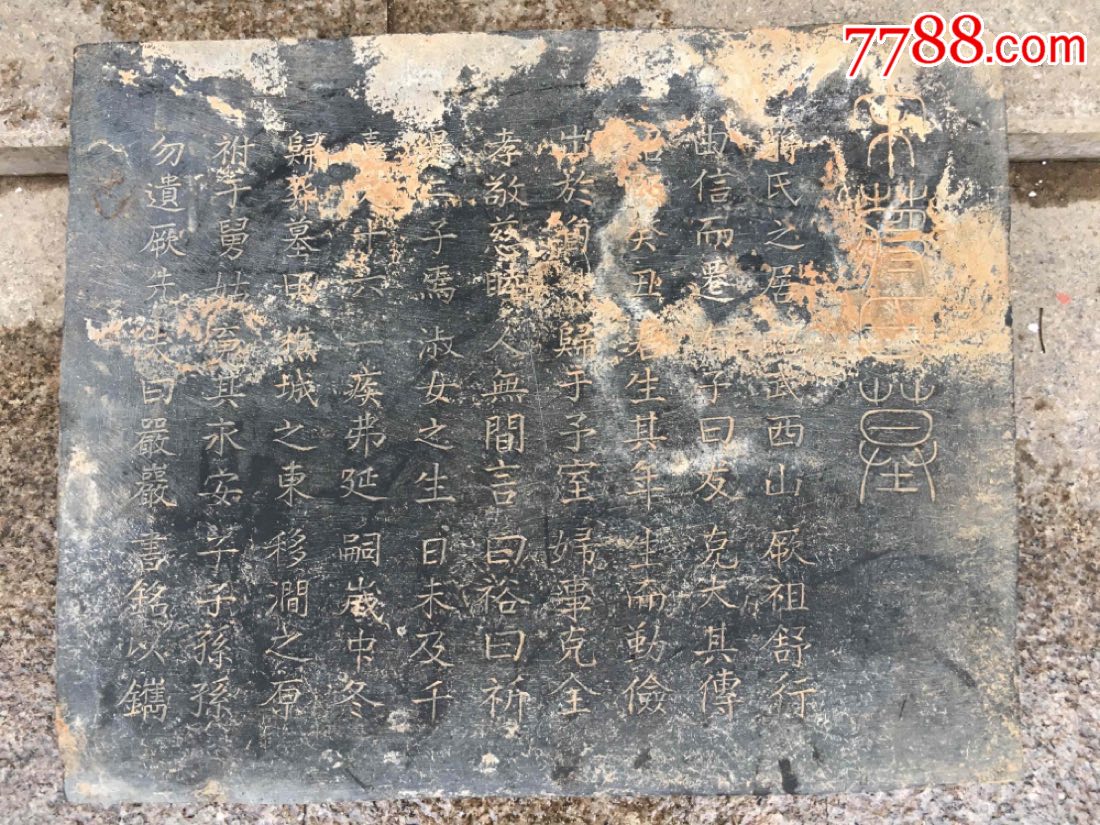 7788.com
宋 墓
氏之居 武西山 厥祖舒行
曲信而遷 子曰友 克大其傳
癸丑 君生其年 生而勤儉
出於 歸于予室 婦事克全
孝敬慈睦 人無間言 曰裕曰祈
子焉 淑女之生 日未及千
十六 一疾弗延 嗣歲中冬
歸葬墓田 城之東 移澗之原
祔于舅姑 其永安 子子孫孫
勿遺厥先 夫曰嚴巖 書銘以鐫